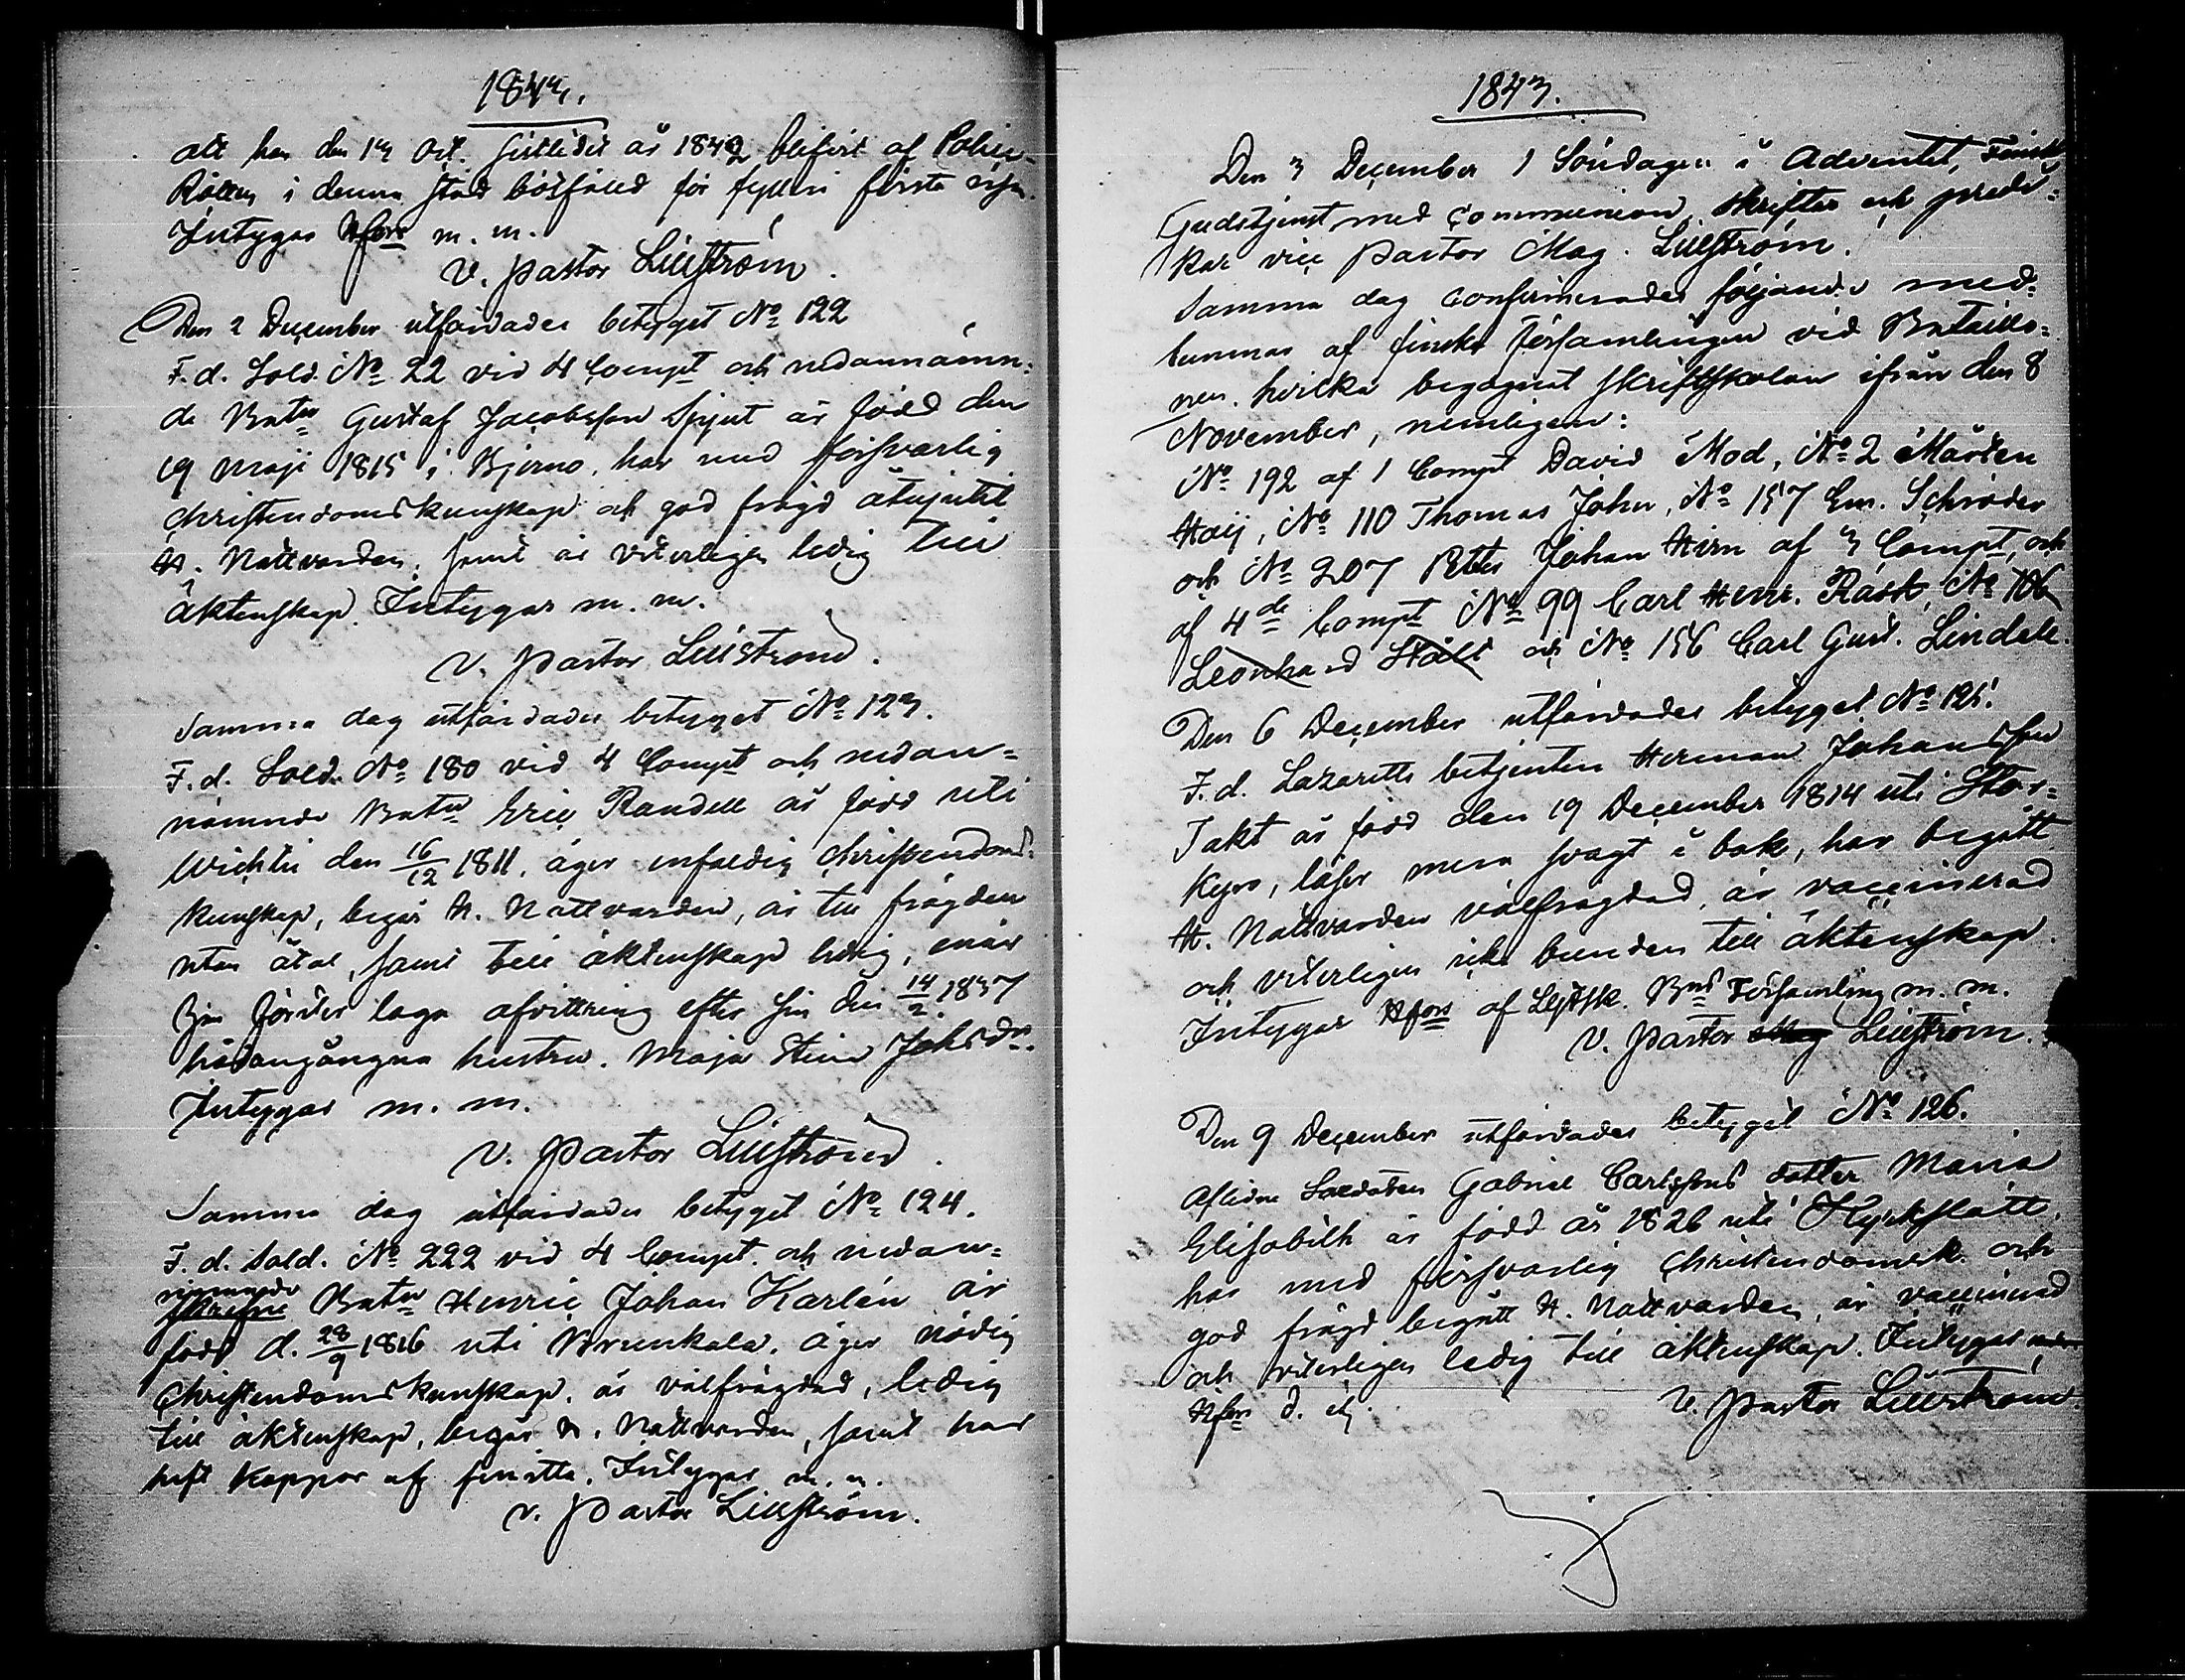 1843.
att han den 14 Oct. sistledit år 1842 blifvit af Police-
Rätten i denna stad bötfälld för fylleri första resan.
Intygar Hfors m. m.
V. Pastor Lillström.
Den 2 December utfärdades betyget No 122
F. d. Sold. No 22 vid 4 Compt och nedannämn-
de Batn Gustaf Jacobsson Spjut är född den
19 Maji 1815 i Bjerno, har med försvarlig
Christendomskunskap och god frägd åtnjutit
H. Nattvarden, samt är veterligen ledig till
äktenskap. Intygar m. m.
V. Pastor Lillström.
Samma dag utfärdades betyget No 123.
F. d. Sold. No 180 vid 4 Compt och nedan-
nämnde Batn Eric Randell är född uti
Wichtis den 16/12 1811, äger enfaldig Christendoms-
kunskap, begår H. Nattvarden, är till frägden
utan åtal, samt till äktenskap ledig, enär
laga afvittring efter sin den 14/2 1837
hädangångna hustru Maja Stina Johsdr.
Intygar m. m.
V. Pastor Lillström.
Samma dag utfärdades betyget No 124.
F. d. Sold. No 222 vid 4 Compt. och nedan-
nämnde Batn Henric Johan Karlén är
född d. 28/9 1816 uti Brunkala, äger nödig
Christendomskunskap, är välfrägdad, ledig
till äktenskap, begår H. Nattvarden, samt har
haft koppor af smitta. Intygar m. m.
V. Pastor Lillström.
1843.
Den 3 December 1 Söndagen i Adventet, Finsk
Gudstjenst med Communion, skriftar och predi-
kar vice Pastor Mag. Lillström.
Samma dag confirmerades följande med-
lemmar af finska Församlingen vid Bataillo-
nen, hvilka begagnat skriftskolan ifrån den 8
November, nemligen:
No 192 af 1 Compt David Mod, No 2 Mårten
Haij, No 110 Thomas John, No 157 Em. Schröder
och No 207 Petter Johan Hirn af 3 Compt, och
af 4de Compt No 99 Carl Henr. Rask, No 106
Leonhard Stålt och No 156 Carl Gust. Lindell.
Den 6 December utfärdades betyget No 125.
F. d. Lazaretts betjenten Herman Johansson
Takt är född den 19 December 1814 uti Stor-
kyro, läser mera svagt i bok, har begått
H. Nattvarden välfrägdad, är vaccinerad
och veterligen icke bunden till äktenskap.
Intygar Hfors af Lifsk. Bns Församling m. m.
V. Pastor Mag Lillström.
Den 9 December utfärdades betyget No 126.
Aflidne Soldaten Gabriel Carlssons dotter Maria
Elisabeth är född år 1826 uti Kyrkslätt,
har med försvarlig Christendomsk. och
god frägd begått H. Nattvarden, är vaccinerad
och veterligen ledig till äktenskap. Intygar
Hfors
V. Pastor Lillström